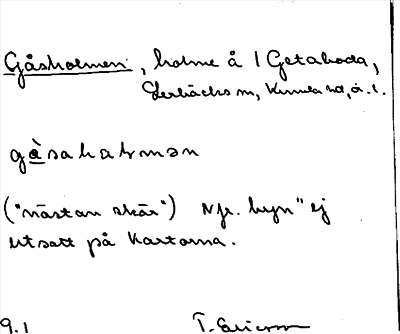 Gåsholmen, holme å 1 Getaboda,
Lerbäcks sn, Kumla hd, ör. l.
gàsahatmən
("nästan skär") Npr. byn "ej
utsatt på kartorna.
9.1 T. Ericson